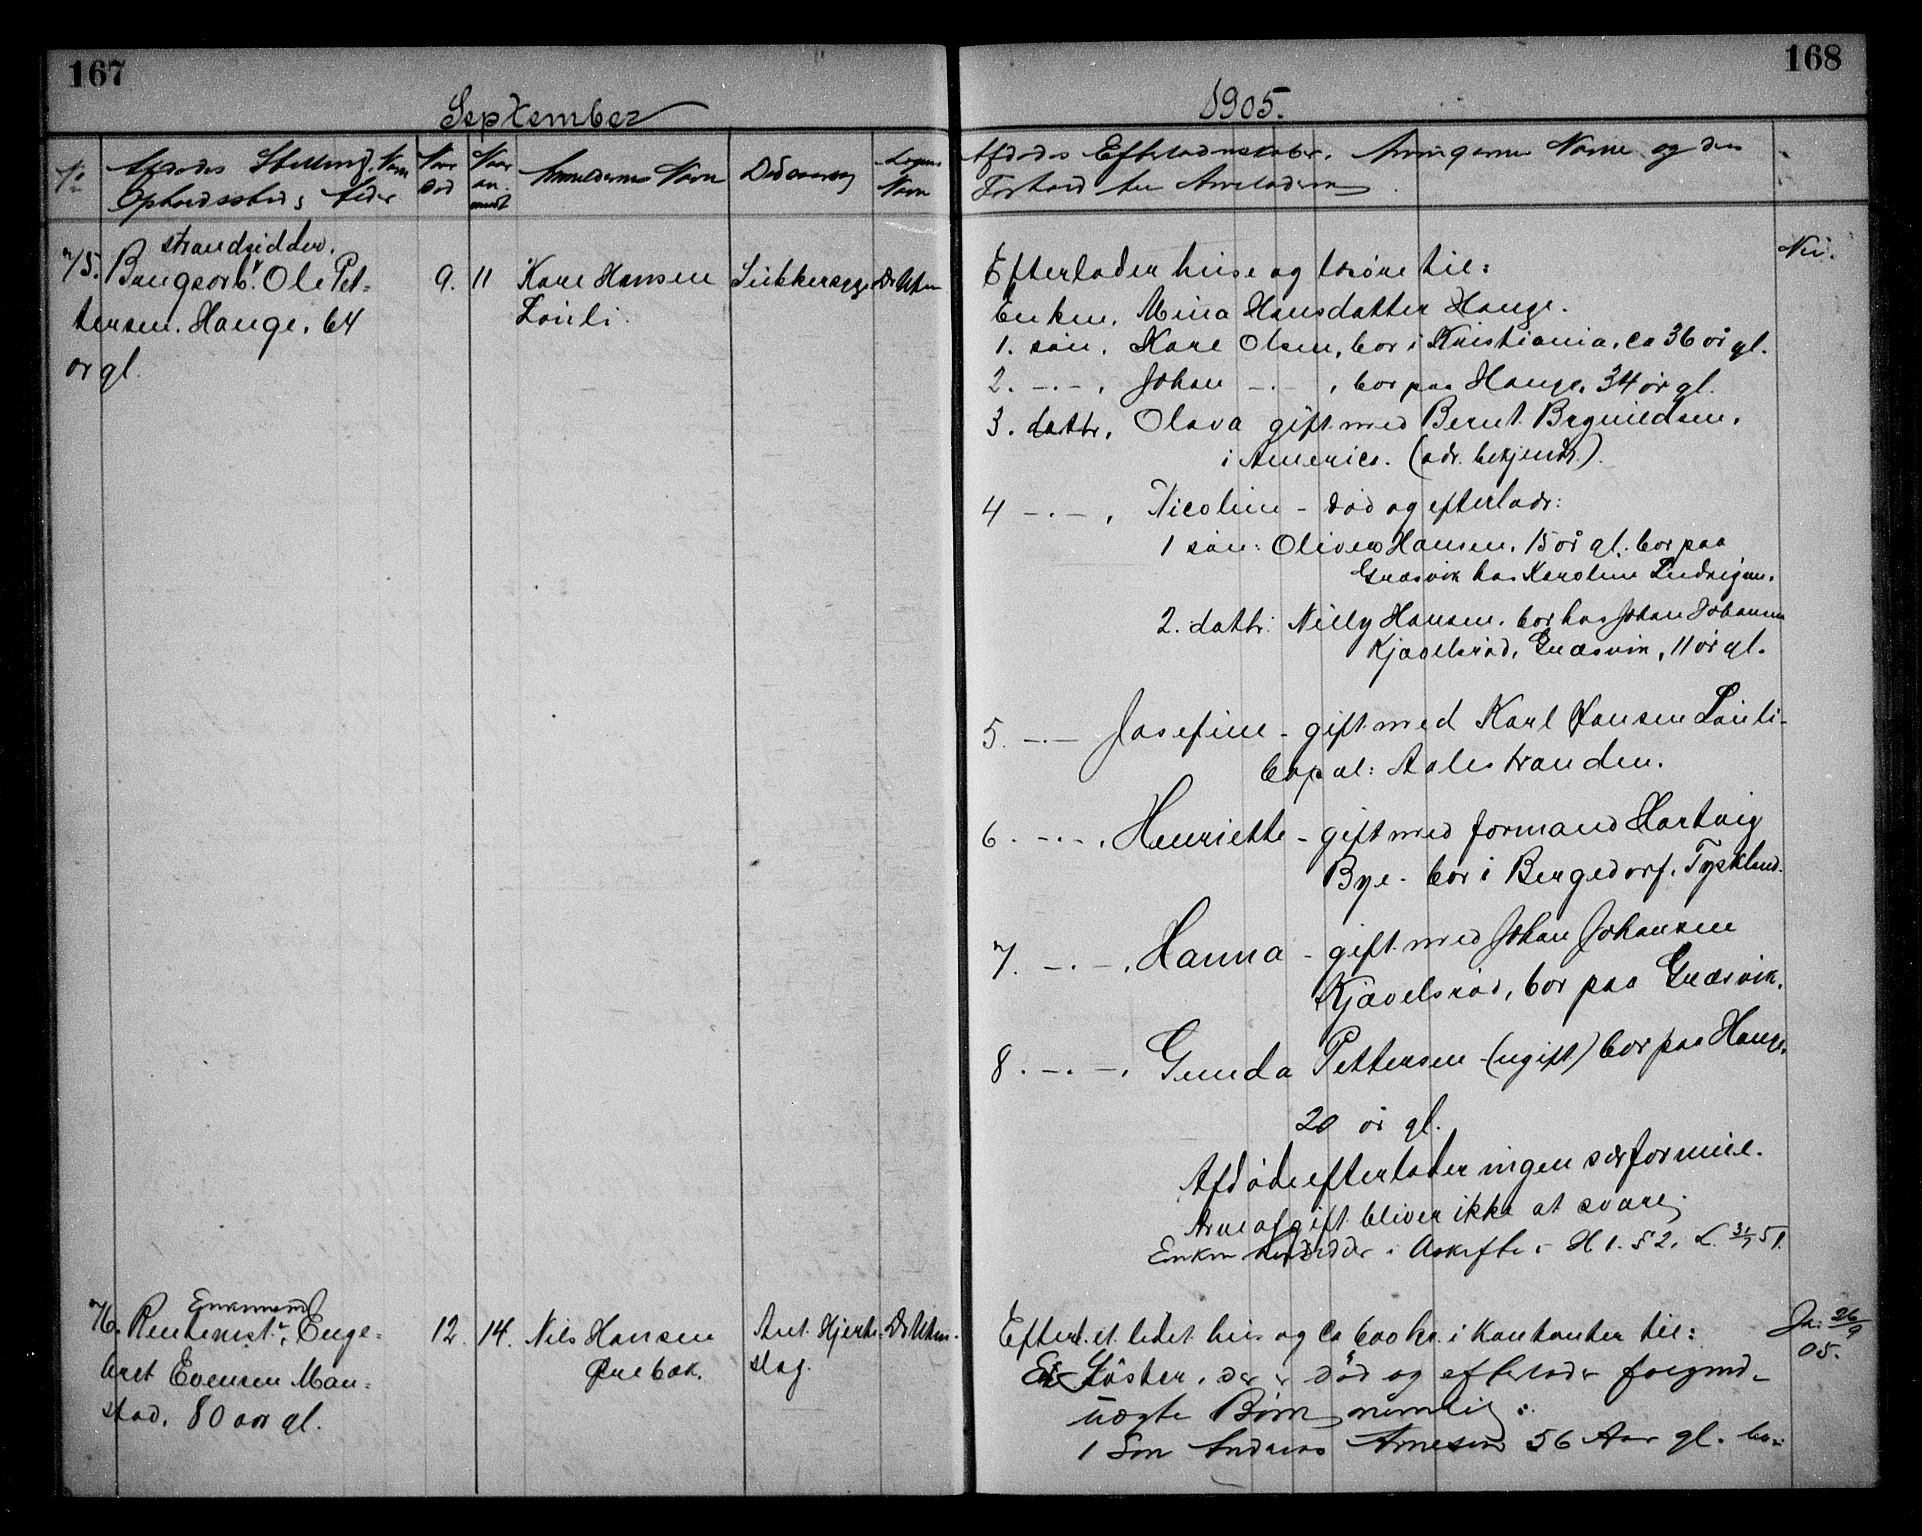 167
168
September
1905.
No
Afdødes Stilling, Navn
Opholdssted, Alder
Naar
død
Naar
an-
meldt
Anmelderens Navn
Dødsaarsag
Lægens
Navn
Afdødes Efterladenskaber. Arvingernes Navne og den
Forhold til Arveladeren
strandsidder.
75. Bangsarb. Ole Pet-
tersen. Hauge, 64
år gl.
9.
11
Karl Hansen
Lönli.
Sukkersyge
Dr Uhm
Nei.
Efterlader huse og lösöre til:
Enken, Mina Hansdatter Hauge.
1. sön, Karl Olsen, bor i Kristiania, ca 36 år gl.
2. -.-, Johan -.- , bor paa Hauge, 34 år gl.
3. dattr, Olava gift med Bernt
i Amerika. (adr. bekjendt).
4 -.-, Nicoline - död og efterladr:
1 sön: Oliver Hansen, 15 år gl. bor paa
Græsvik hos Karoline Ludvigsen.
2. dattr: Nilly Hansen, bor hos Johan Johansen
Kjævelsröd, Græsvik, 11 år gl.
5. -.- Josefine - gift med Karl Hansen Lönli-
bopæl: Aalestranden.
6. -.-. Henriette - gift med formand Hartvig
Bye - bor i Bergedorf, Tyskland.
7. -.-. Hanna - gift med Johan Johansen
Kjævelsröd, bor paa Græsvik.
8. -.-. Gunda Pettersen (ugift) bor paa Hauge,
20 år gl.
Afdöde efterlader ingen særformue.
Arveafgift bliver ikke at svare.
Enken hensidder i Uskifte i H t. § 2, L. 31/7 51.
Enkemand
76. Rentenist, Enge-
bret Evensen Mau-
stad, 80 aar gl.
12.
14.
Nils Hansen
Ørebæk.
Ant. Hjerte-
slag.
Dr Uhm.
Ja. 26/9
05.
Efterl. et lidet hus og ca 600 kr. i kontanter til:
En Söster, der er död og efterlader følgende
uægte Børn nemlig:
1 Søn Andreas Arnesen 56 Aar gl. bor